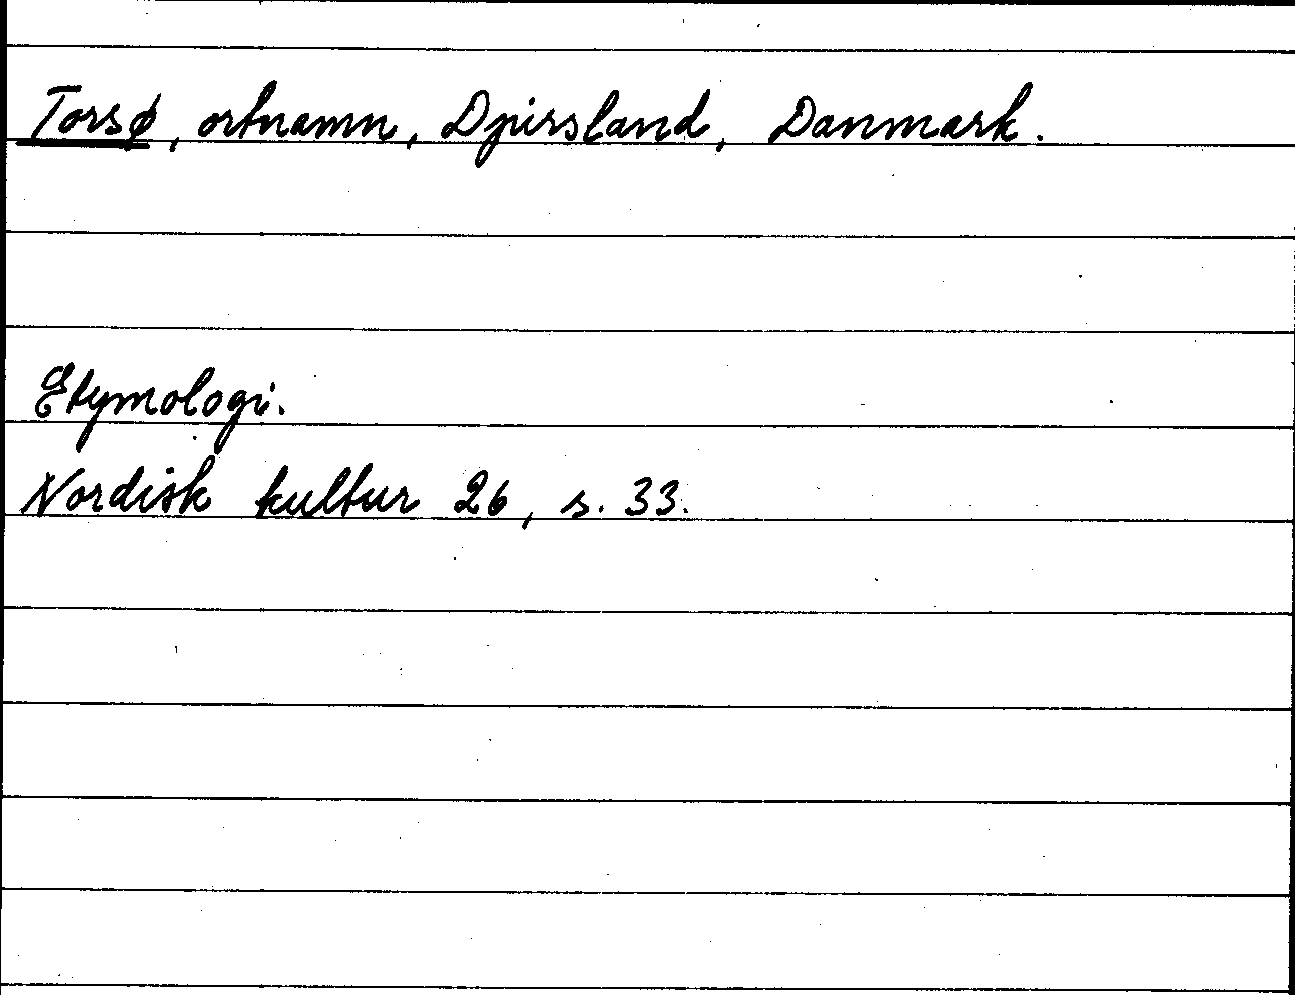 Torsø, ortnamn, Djursland, Danmark.
Etymologi.
Nordisk kultur 26, s. 33.